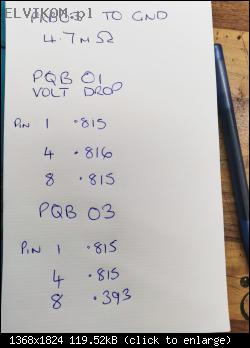 ELVIKOM.pl
TO GND
4.7MΩ
PQB 01
VOLT DROP
PIN 1 .815
4 .816
8 .815
PQB 03
PIN 1 .815
4 .815
8 .393
1368x1824 119.52kB (click to enlarge)